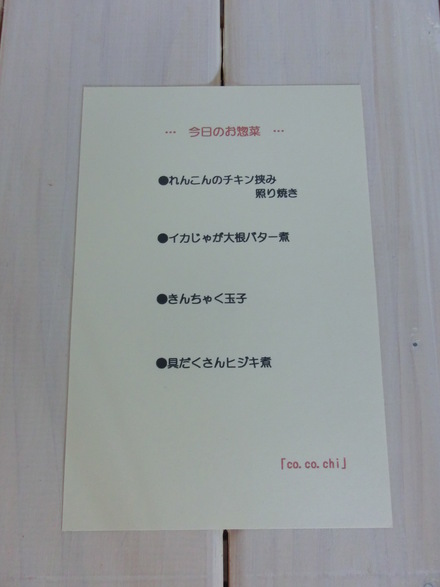 … 今日のお惣菜 …
●れんこんのチキン挟み
照り焼き
●イカじゃが大根バター煮
●きんちゃく玉子
●具だくさんヒジキ煮
「co.co.chi」